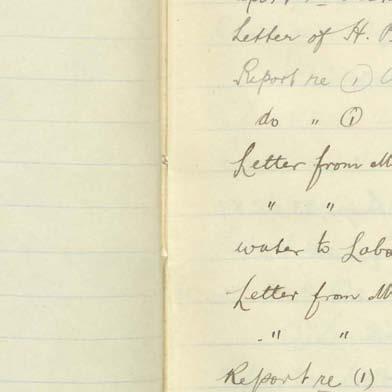 Letter of H.
Report re (1)
do " (1)
Letter from M
" "
water to Labo
Letter from M
" "
Report re (1)